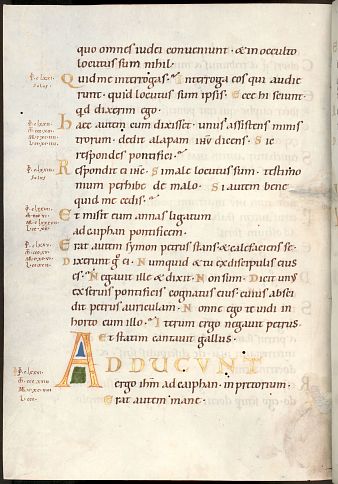 quo omnes iudei conueniunt · & in occulto
locutus sum nihil ·
Quid me interrogas · Interroga eos qui audie
runt · quid locutus sum ipsis · Ecce hi sciunt ·
qd dixerim ego ·
Haec autem cum dixisset · unus assistens minis
trorum · dedit alapam ihu dicens · Sic
respondes pontifici ·
Respondit ei ihs · Si male locutus sum · testimo
nium perhibe de malo · Si autem bene
quid me cedis ·
Et misit eum annas ligatum
ad caiphan pontificem ·
Erat autem symon petrus stans & calefaciens se ·
Dixerunt g ei · Numquid & tu ex discipulis eius
es · Negauit ille & dixit · Non sum · Dicit unus
ex seruis pontificis cognatus eius · cuius absci
dit petrus auriculam · Nonne ego te uidi in
horto cum illo · Iterum ergo negauit petrus ·
Et statim cantauit gallus ·
ADDUCUNT
ergo ihm ad caiphan · in pretorium ·
Erat autem mane ·